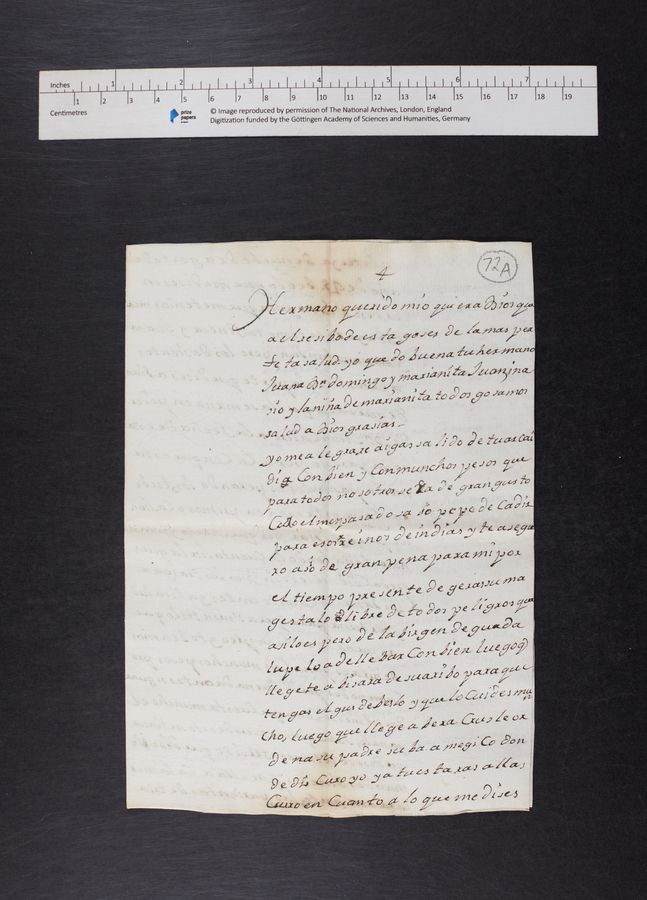 Inches 1 2 3 4 5 6 7
1 2 3 4 5 6 7 8 9 10 11 12 13 14 15 16 17 18 19
Centimetres
prize papers
© Image reproduced by permission of The National Archives, London, England
Digitization funded by the Göttingen Academy of Sciences and Humanities, Germany
72A
Hermano querido mio quiera Dios que
a el resibo de esta goses de la mas per
fe ta salud yo quedo buena tu hermano
Juana Dn domingo y marianita Juan
sio y la niña de marianita todos gosamos
salud a Dios grasias
yo me a legrare aigas salido de tu
dia Con bien y Con munchos pesos que
para todos nosotros sera de gran gusto
el mes pasado salio pepe de Cadis
para esos reinos de indias y te asegu
ro a sido de gran pena para mi por
el tiempo presente de gerra su ma
gestalo libre de todos peligros que
asi lo es pero de la birgen de guada
lupe lo a de lle bar Con bien luego q
llege te a bisara de su aribo para que
tengas el gus de berlo y que lo Cuides mu
cho, luego que llege a bera Crus le or
dena su padre su ba a megi Co don
de dis Curo yo ya tu estaras allas
Curo en Cuanto a lo que me dises